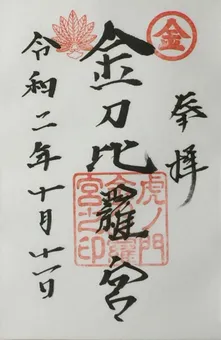 金
奉拝
金刀比羅宮
虎ノ門
宮之印
令和二年十月十一日